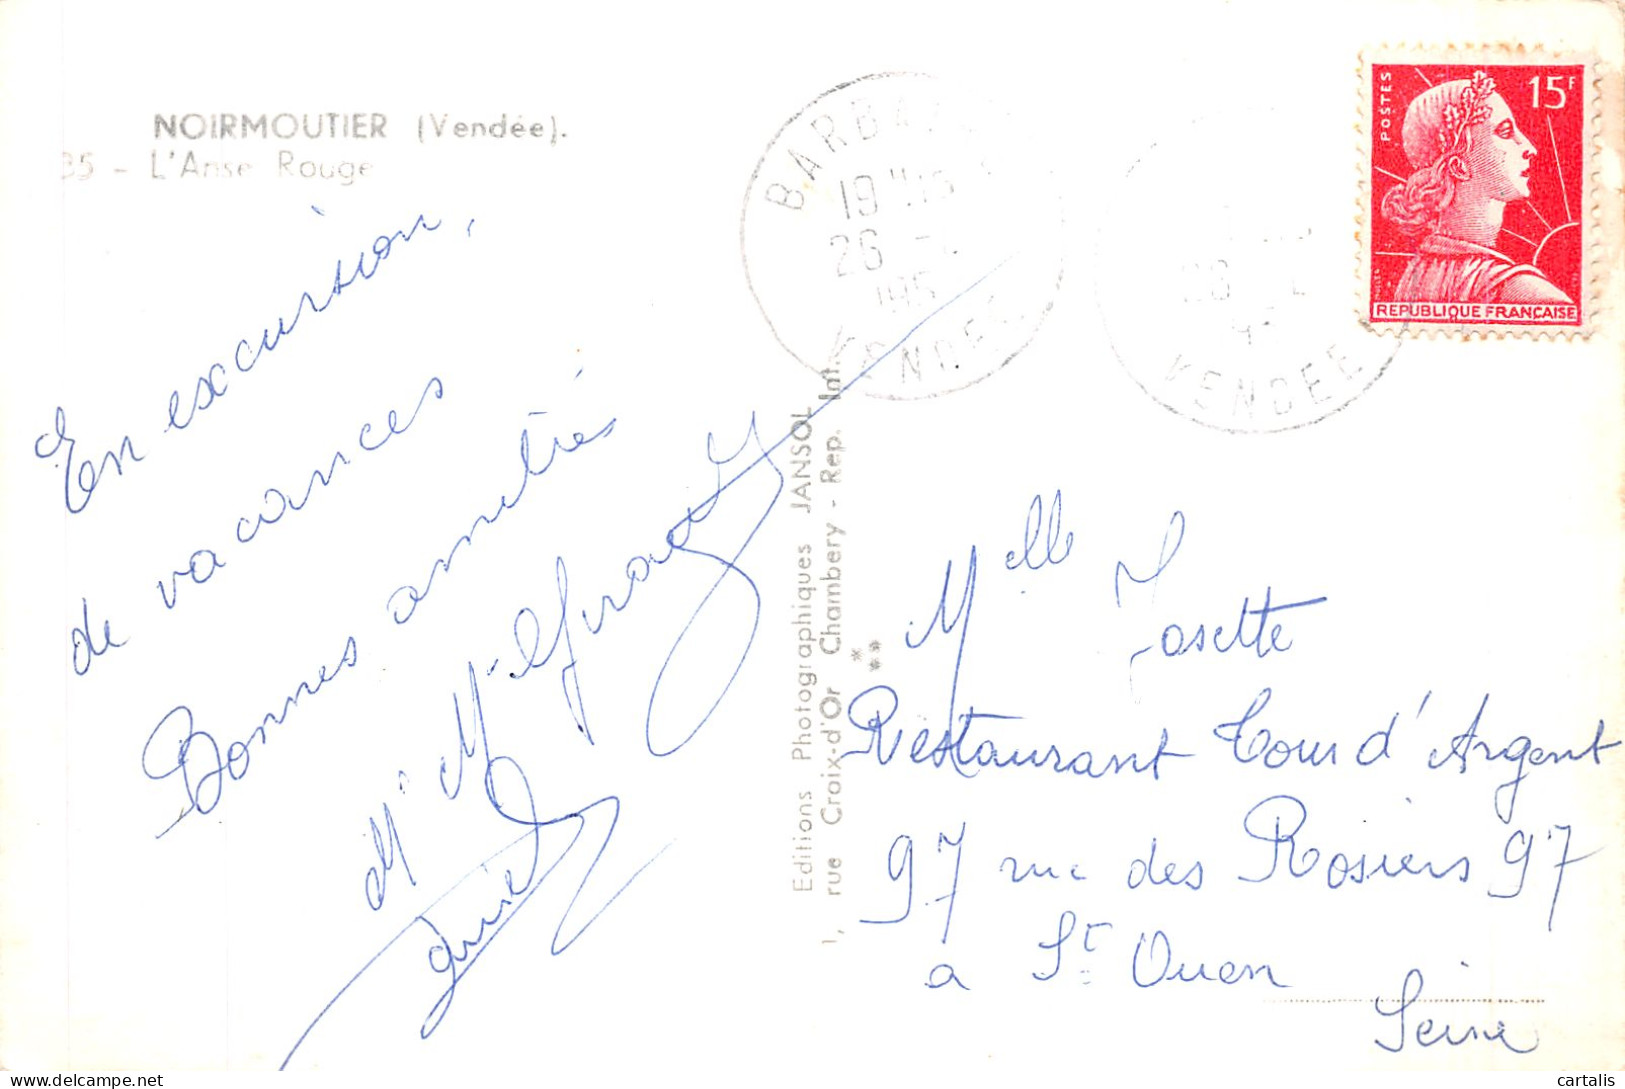 NOIRMOUTIER (Vendée).
35 - L'Anse Rouge
En excursion,
de vacances
Bonnes amitiés
19 H
26
VENDEE
VENDEE
POSTES
15F
REPUBLIQUE FRANÇAISE
Editions Photographiques JANSOL
1, rue Croix-d'Or Chambery - Rep. Int.
Melle Josette
Restaurant Tour d'Argent
97 rue des Rosiers 97
a St Ouen
Seine
cartalis